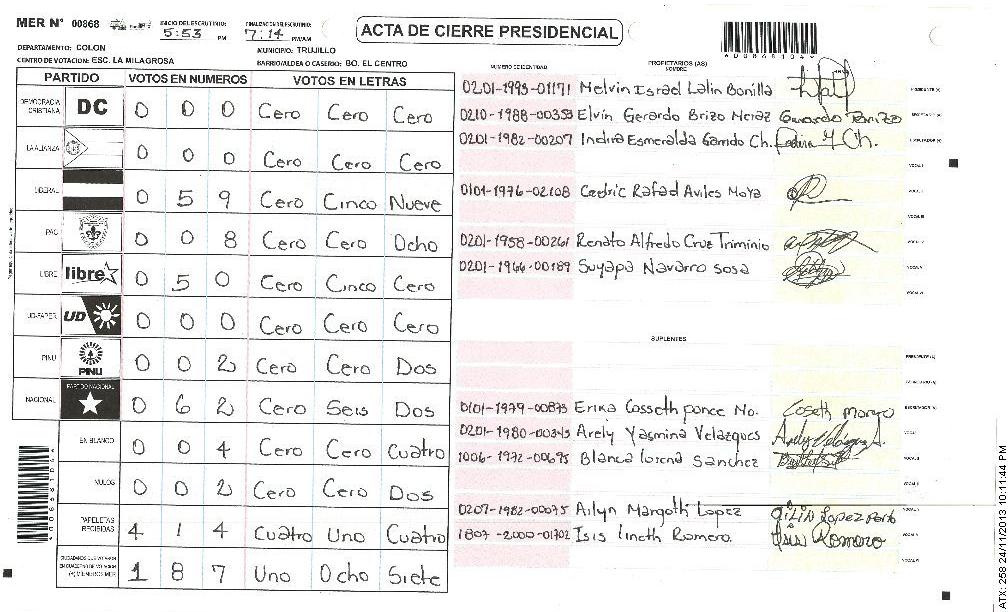 MER N° 00868
INICIO DEL ESCRUTINIO: 5:53 PM
FINALIZACION DEL ESCRUTINIO: 7:14 PM/AM
ACTA DE CIERRE PRESIDENCIAL
DEPARTAMENTO: COLON
MUNICIPIO: TRUJILLO
CENTRO DE VOTACION: ESC. LA MILAGROSA
BARRIO/ALDEA O CASERIO: BO. EL CENTRO
PARTIDO VOTOS EN NUMEROS VOTOS EN LETRAS
DEMOCRACIA CRISTIANA DC 0 0 0 Cero Cero Cero
LA ALIANZA 0 0 0 Cero Cero Cero
LIBERAL 0 5 9 Cero Cinco Nueve
PAC 0 0 8 Cero Cero Ocho
LIBRE libre 0 5 0 Cero Cinco Cero
UD-FAPER UD 0 0 0 Cero Cero Cero
PINU PINU 0 0 2 Cero Cero Dos
NACIONAL PARTIDO NACIONAL 0 6 2 Cero Seis Dos
EN BLANCO 0 0 4 Cero Cero Cuatro
NULOS 0 0 2 Cero Cero Dos
PAPELETAS RECIBIDAS 4 1 4 Cuatro Uno Cuatro
CIUDADANOS QUE VOTARON EN CUADERNO DE VOTACION (+) MIEMBROS MER 1 8 7 Uno Ocho Siete
NUMERO DE IDENTIDAD
PROPIETARIOS (AS)
NOMBRE
FIRMA
0201-1993-01171 Melvin Israel Lalin Bonilla PRESIDENTE (A)
0210-1988-00353 Elvin Gerardo Brizo Meraz SECRETARIO (A)
0201-1982-00207 Indira Esmeralda Garrido Ch. ESCRUTADOR (A)
VOCAL I
0101-1976-02108 Cedric Rafael Aviles Moya VOCAL II
VOCAL III
0201-1958-00261 Renato Alfredo Cruz Triminio VOCAL IV
0201-1966-00189 Suyapa Navarro Sosa VOCAL V
VOCAL VI
SUPLENTES
PRESIDENTE (A)
SECRETARIO (A)
0101-1979-00875 Erika Cosseth ponce No. ESCRUTADOR (A)
0201-1980-00345 Arely Yasmina Velazques VOCAL I
1006-1972-00695 Blanca lorena Sanchez VOCAL II
VOCAL III
0207-1982-00075 Ailyn Margoth Lopez VOCAL IV
1807-2000-01702 Isis lineth Romero. Isis Romero VOCAL V
VOCAL VI
ATX: 258 24/11/2013 10:11:44 PM